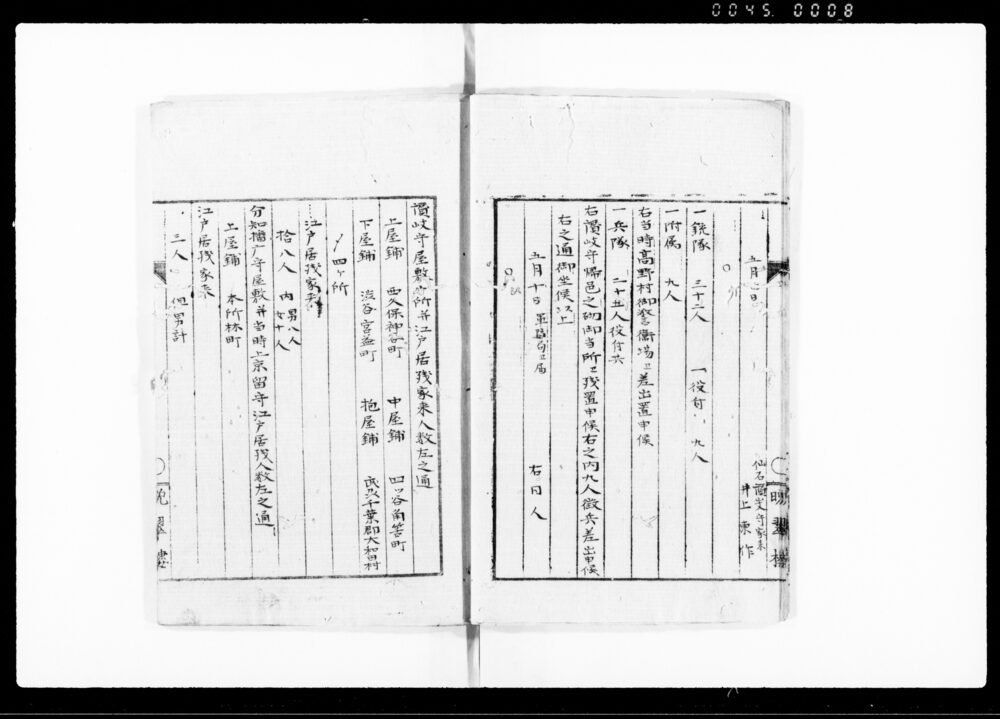 0045. 0008
五月七日
仙石讃岐守家来
井上東作
一銃隊　三十二人　一役付　九人
一附属　九人
右当時高野村御警衛場ニ差出置申候
一兵隊　二十五人役付共
右讃岐守帰邑之砌御当所ニ残置申候右之内九人徴兵差出申候
右之通御坐候以上
五月十日軍監局ヱ届　右同人
讃岐守屋敷ヶ所并江戸居残家来人数左之通
上屋鋪　西久保神谷町　中屋鋪　四ツ谷角筈町
下屋鋪　渋谷宮益町　抱屋鋪　武州千葉郡大和田村
〆四ヶ所
江戸居残家来
拾八人　内　男八人　女十人
分知播磨守屋敷并当時上京留守江戸居残人数左之通
上屋鋪　本所林町
江戸居残家来
三人　但男計
晩翠樓